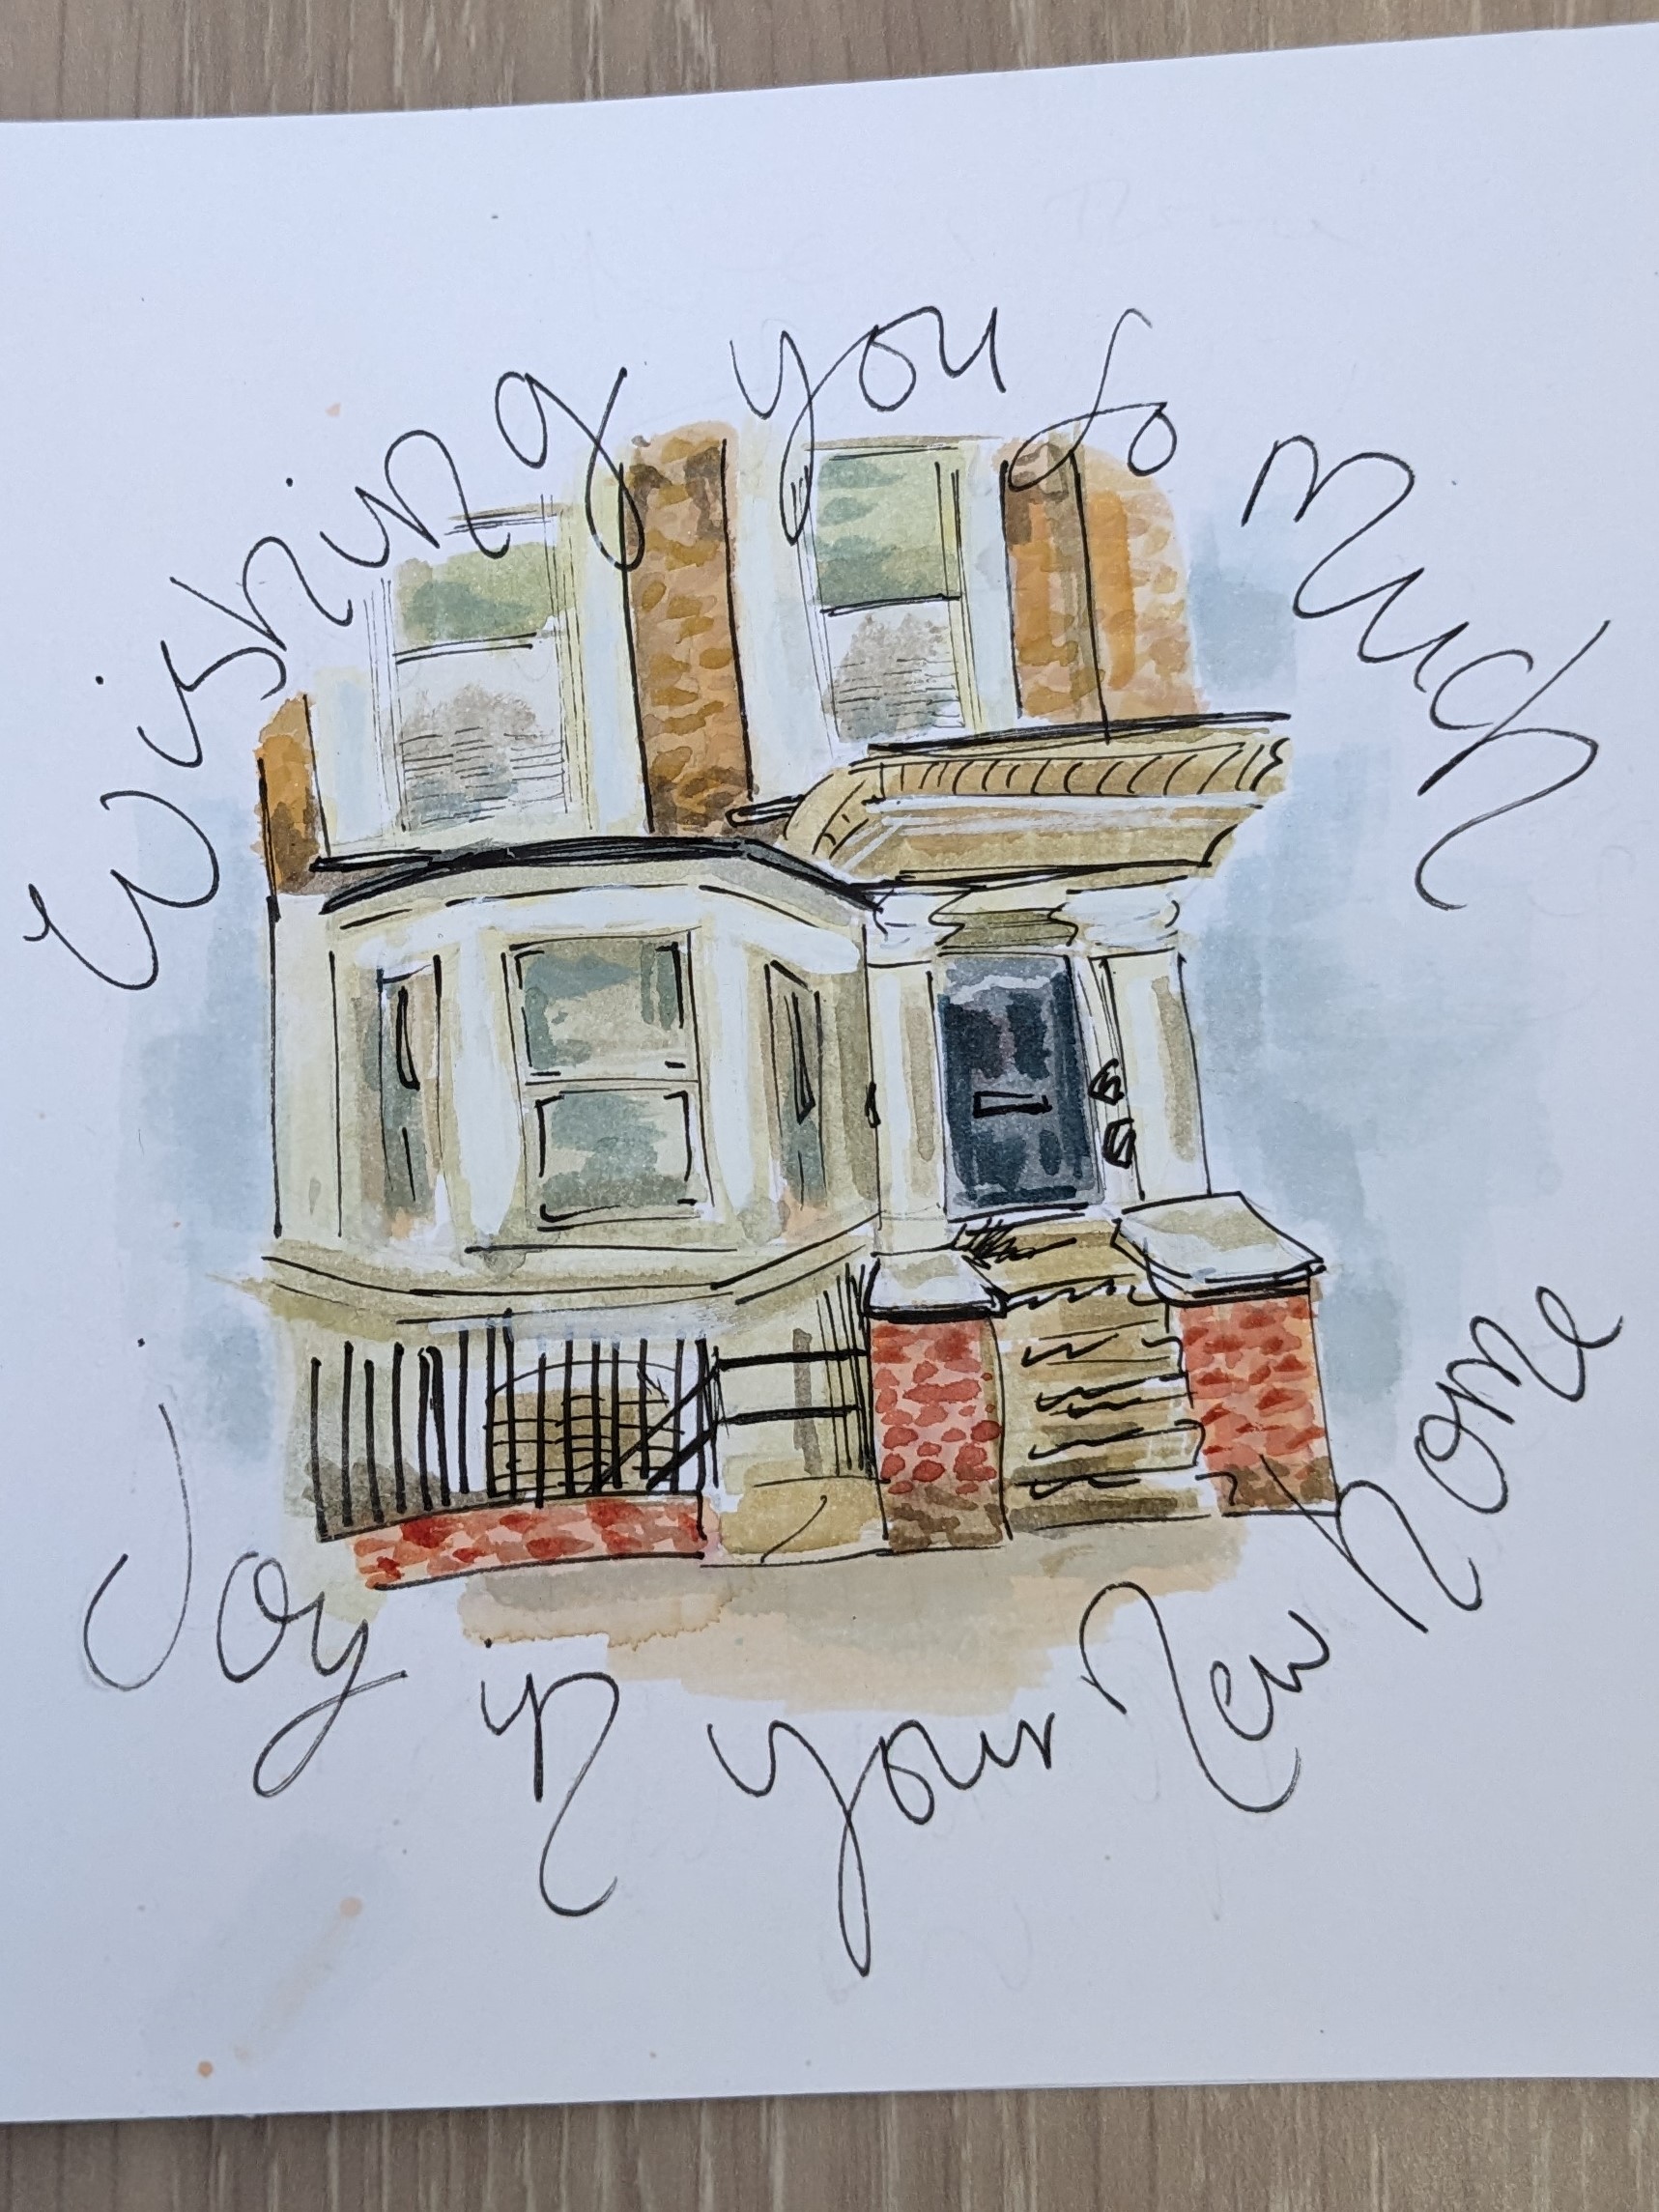 Wishing you so much
Joy in your new home